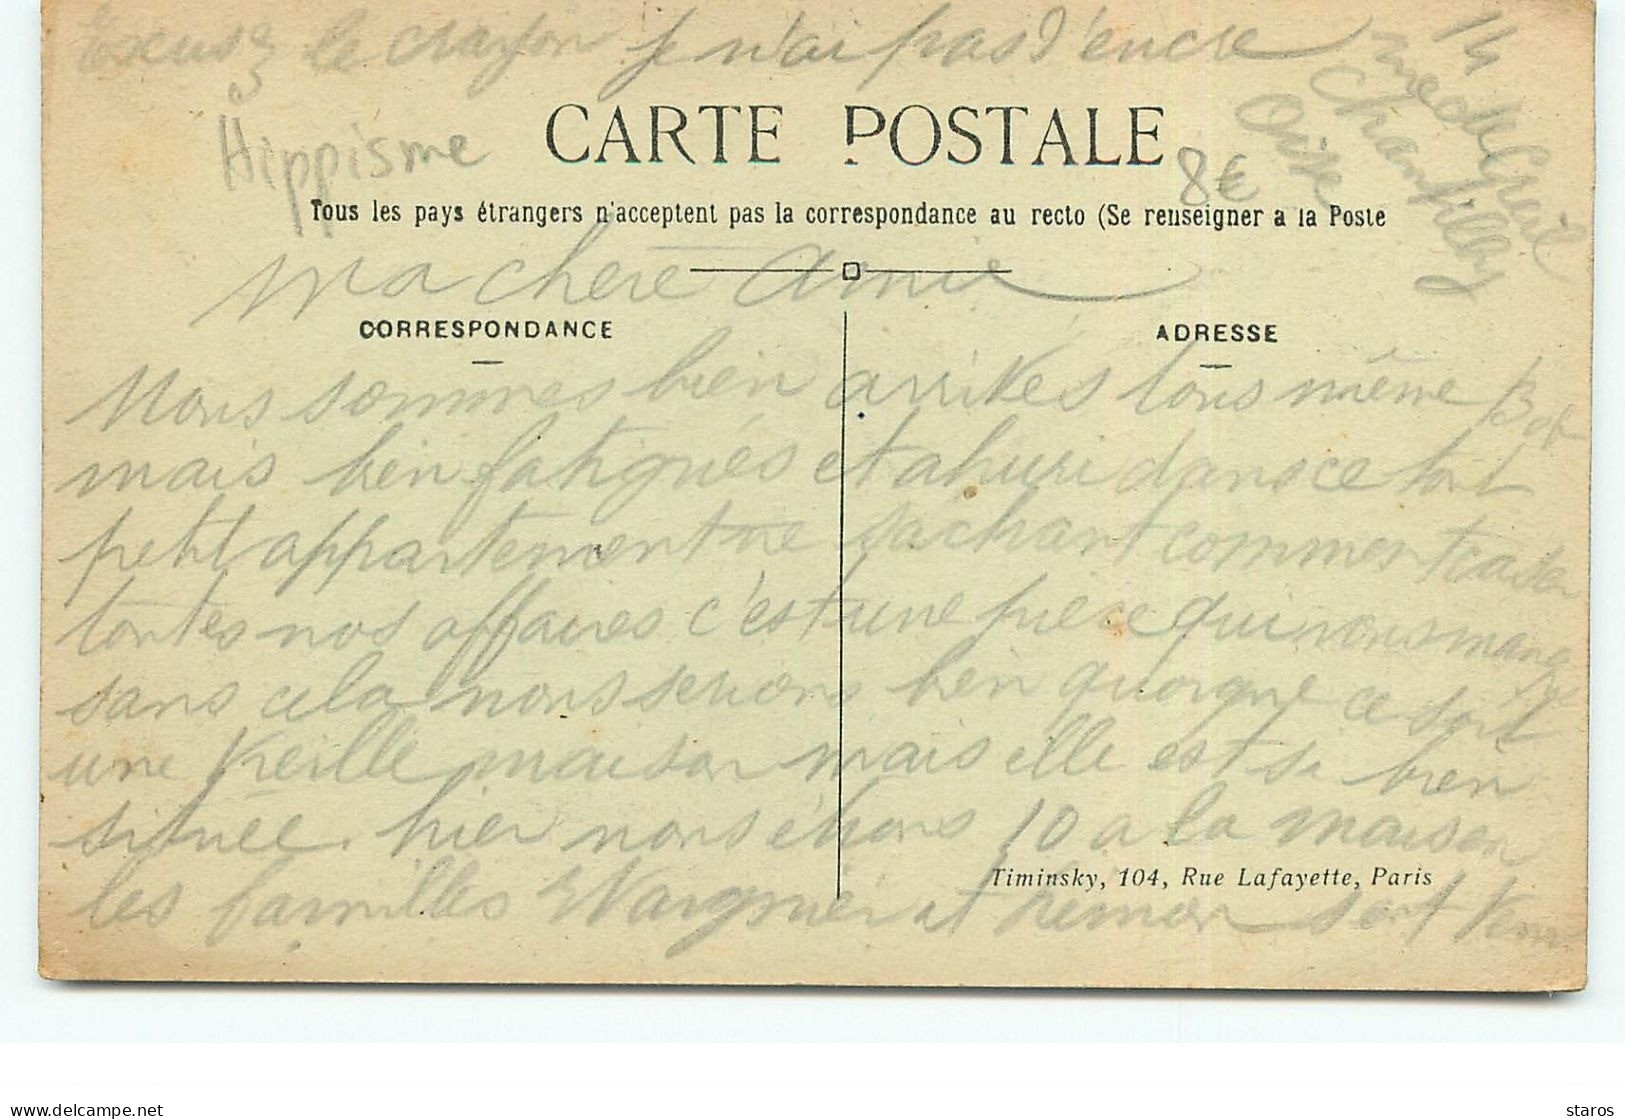 Excusez le crayon je n'ai pas d'encre
14
rue de Creil
Chantilly
Oise
Hippisme
8€
CARTE POSTALE
Tous les pays étrangers n'acceptent pas la correspondance au recto (Se renseigner a la Poste
Ma chère Amie
CORRESPONDANCE
ADRESSE
Nous sommes bien arrivés tous même Bob
mais bien fatigués et ahuri dans ce tout
petit appartement ne sachant comment caser
toutes nos affaires c'est une pièce qui nous manque
sans cela nous serions bien quoique ce soit
une vieille maison mais elle est si bien
située. hier nous étions 10 a la maison
les familles Wargnier et sont venu
Timinsky, 104, Rue Lafayette, Paris
delcampe.net
staros